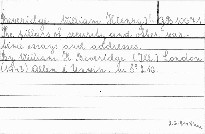 Beveridge, William H(enry)
The pillars of security and other war-
time essays and addresses.
By William H. Beveridge London
(1943) Allen & Unwin. 8° 216.